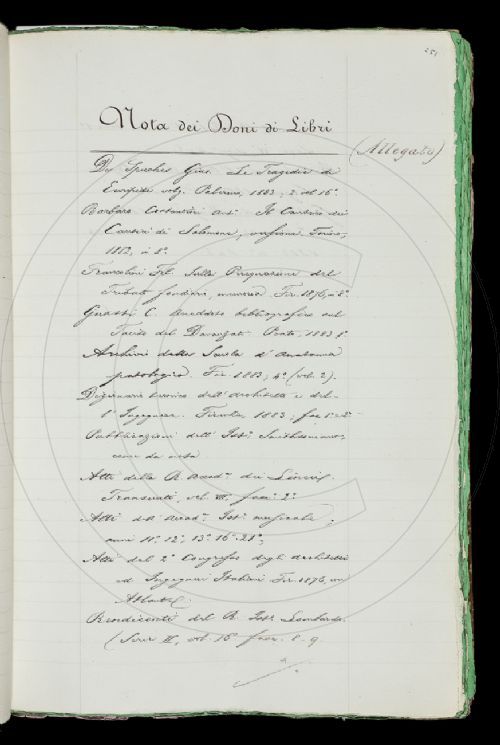 251
Nota dei Doni di Libri
(Allegato)
De Spuches Gius. Le Tragedie di
Euripide volg. Palermo, 1883, 2 vol 16°.
Barbaro Costantini Il Cantico dei
Cantici di Salomone, versione. Torino,
1882, in 8°.
Francolini Fel. Sulla Perequazione del
Tributo fondiario, memoria. Fir. 1876, in 8°.
Guasti C. Aneddoto bibliografico sul
Tacito del Davanzati. Prato, 1883 8°.
Archivi della Scuola d'Anatomia
patologica. Fir. 1883, 4° (vol. 2).
Dizionario tecnico dell'architetto e del-
l'Ingegnere. Firenze, 1883; fasc 1° e 2°
Pubblicazioni dell'Ist°. Smithsoniano,
come da nota
Atti della R. Accad.ª dei Lincei.
Transunti, vol. VII. fasc. 2°
Atti dell' Accad.ª Ist° musicale;
anni 11°. 12°, 13°. 16°. 21°;
Atti del 2° Congresso degli Architetti
ed Ingegneri Italiani Fir. 1876, con
Atlante.
Rendiconti del R. Ist° Lombardo.
(Serie II, vol. 16° fasc. 8. 9